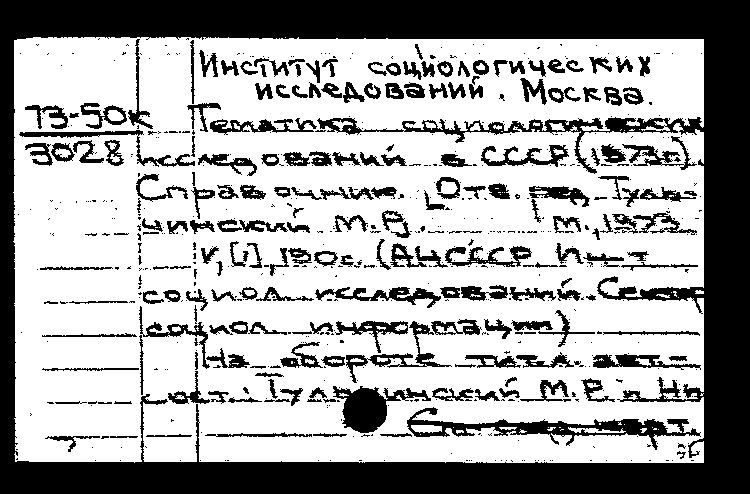 Институт социологических
исследований. Москва.
73-50к Тематика социологических
3028 исследований в СССР (1973г).
Справочник. [Отв. ред. Туль-
чинский М. Р. М., 1973
V, [1], 190 с. (АН СССР. Ин-т
социол. исследований. Сектор
социол. информации)
На обороте тит. л. авт.-
сост.: Тульчинский М. Р. и Ни
См. след. карт.